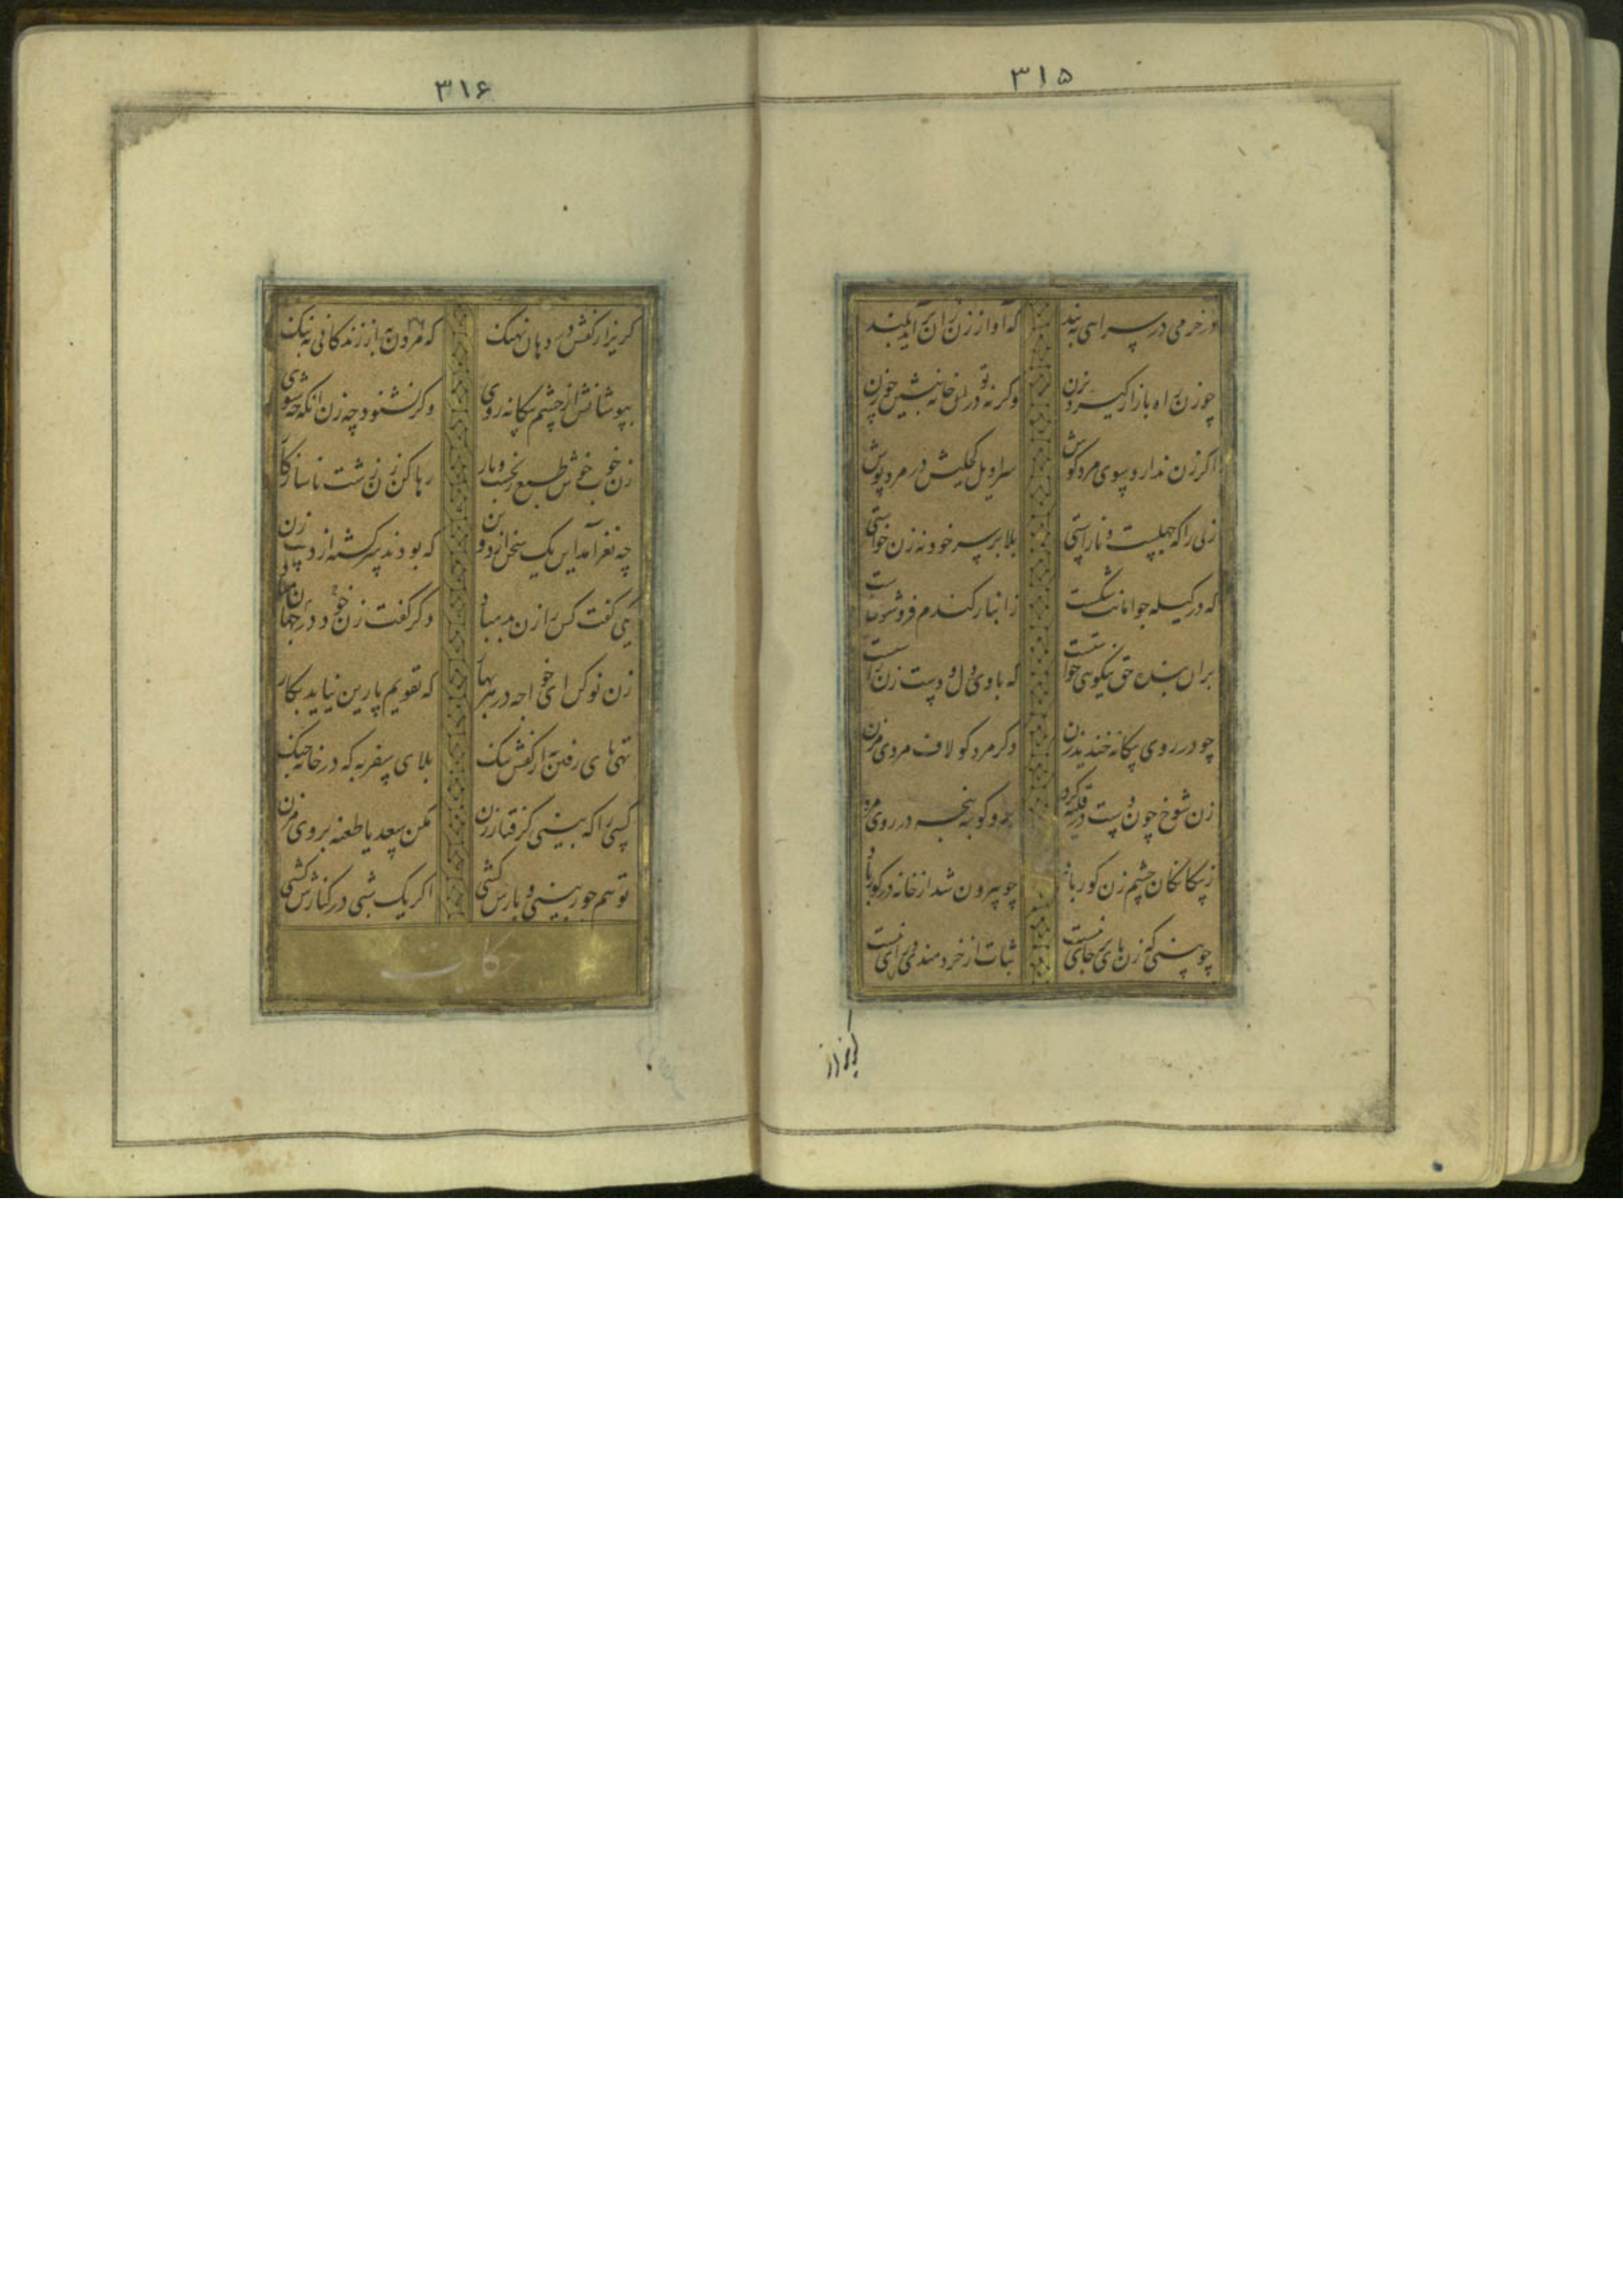 ۳۱۵
در خرمی در سرایی ببند
که آواز زن را بر آید بلند
چو زن راه بازار گیرد بزن
وگرنه تو در خانه بنشین چو زن
اگر زن ندارد سوی مرد گوش
سراویل کحلیش در مرد پوش
زنی را که جهلست و ناراستی
بلا بر سر خود نه زن خواستی
که در کیله جو امانت شکست
ز انبار گندم فرو شوی دست
بر آن بنده حق نیکویی خواستست
که با وی دل و دست زن راستست
چو در روی بیگانه خندید زن
دگر مرد گو لاف مردی مزن
زن شوخ چون دست در قلیه کرد
برو گو بنه پنجه در روی مرد
ز بیگانگان چشم زن کور باد
چو بیرون شد از خانه در گور باد
چو بینی که زن پای بر جای نیست
ثبات از خردمندی و رای نیست
گریز از
۳۱۶
گریز از کفش در دهان نهنگ
که مردن به از زندگانی به ننگ
بپوشانش از چشم بیگانه روی
وگر نشنود چه زن آنگه چه شوی
زن خوب خوش طبع رنجست و بار
رها کن زن زشت ناسازگار
چه نغز آمد این یک سخن زان دو تن
که بودند سرگشته از دست زن
یکی گفت کس را زن بد مباد
دگر گفت زن خود در جهان مباد
زن نو کن ای خواجه در هر بهار
که تقویم پارین نیاید بکار
تهی پای رفتن به از کفش تنگ
بلای سفر به که در خانه جنگ
کسی را که بینی گرفتار زن
مکن سعدیا طعنه بر وی مزن
تو هم جور بینی و بارش کشی
اگر یک شبی در کنارش کشی
حکایت